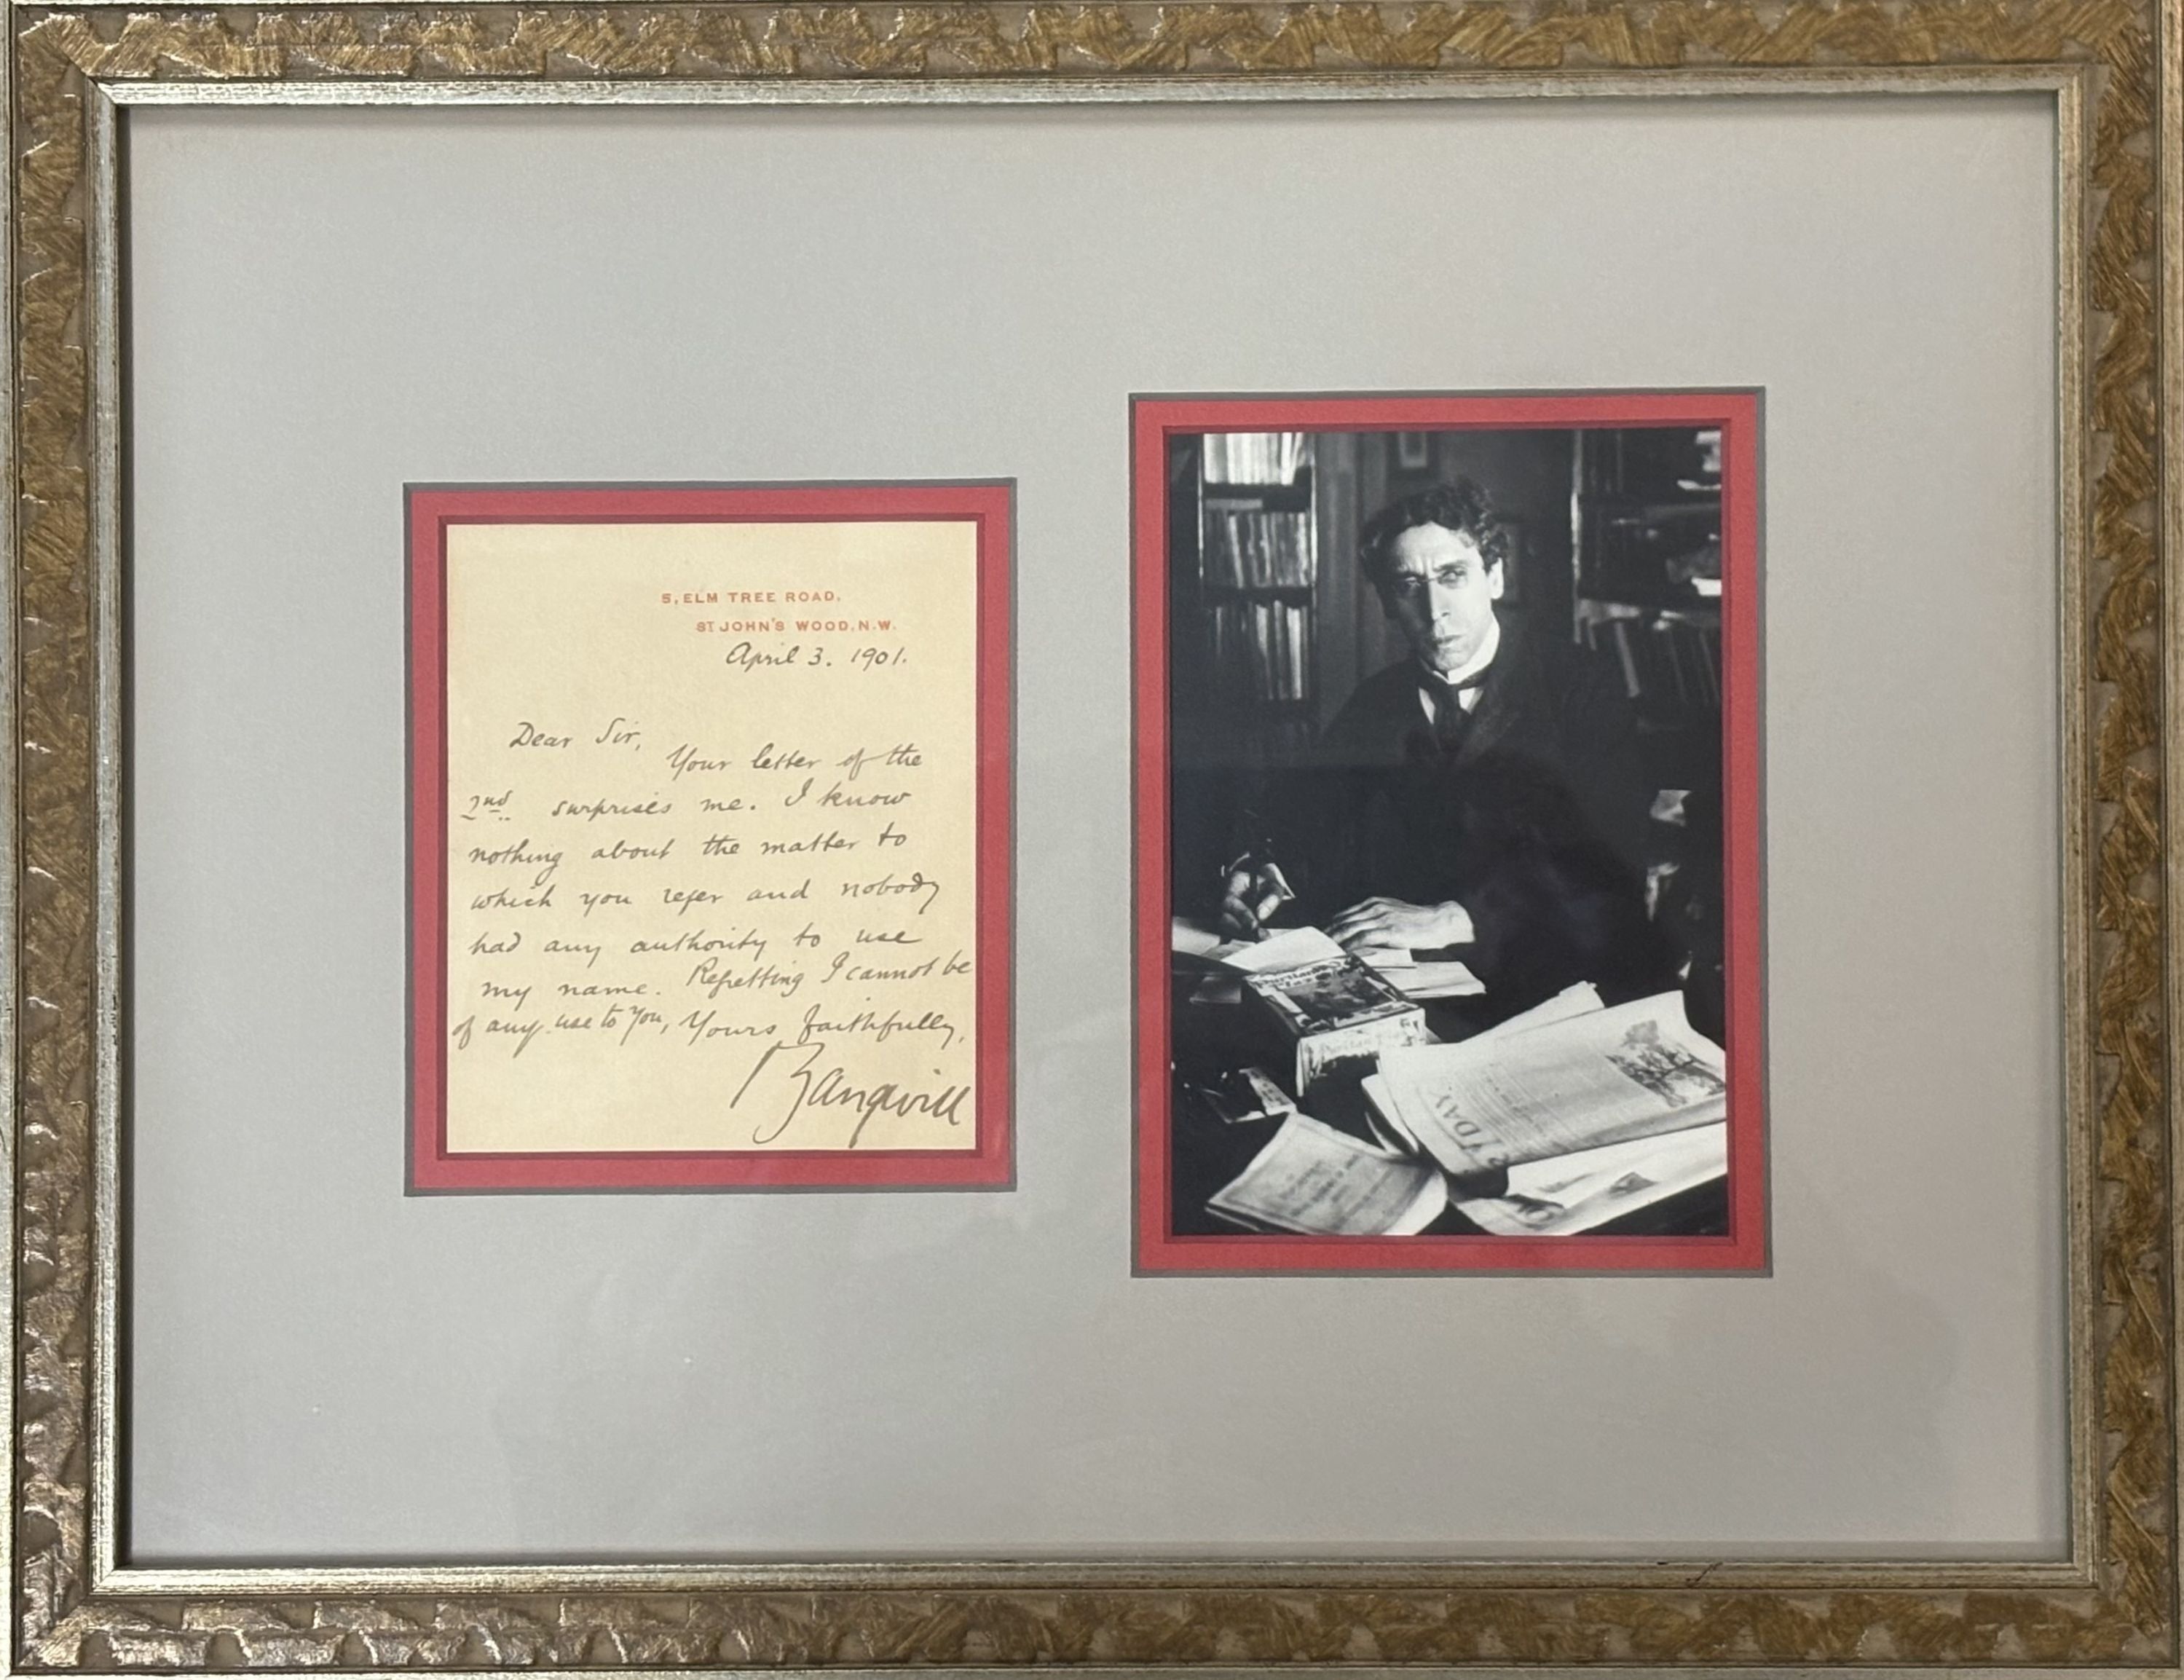 5, ELM TREE ROAD,
ST JOHN'S WOOD, N.W.
April 3. 1901.
Dear Sir,
Your letter of the
2nd surprises me. I know
nothing about the matter to
which you refer and nobody
had any authority to use
my name. Regretting I cannot be
of any use to you, Yours faithfully,
I Zangwill
DAY